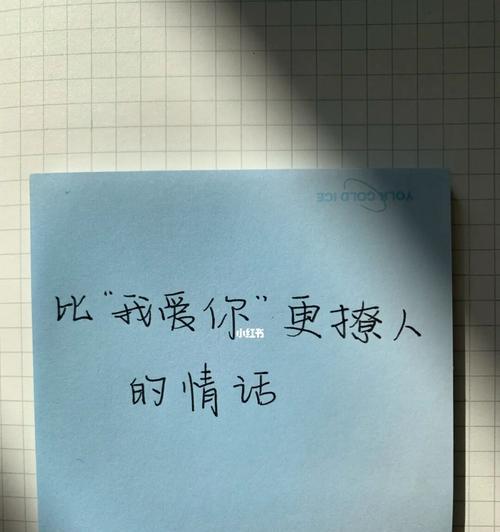 YOUR COLD ICE
比“我爱你”更撩人
小红书
的情话